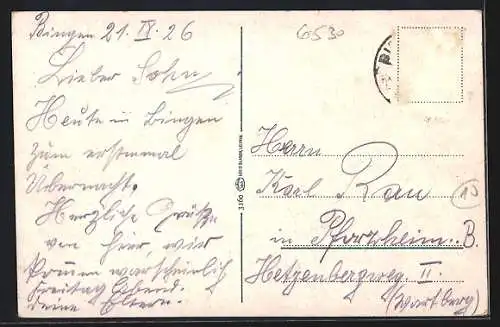 Bingen 21. IX. 26
Lieber Sohn,
Heute in Bingen
zum erstemmal
Übernacht.
Herzliche Grüße
von hier, wir
kommen warscheinlich
Freitag Abend.
deine Eltern.
3260
6530
BI
Herrn
Karl Rau
in Pforzheim. B.
Hetzenbergweg. II.
(Wartberg)
10